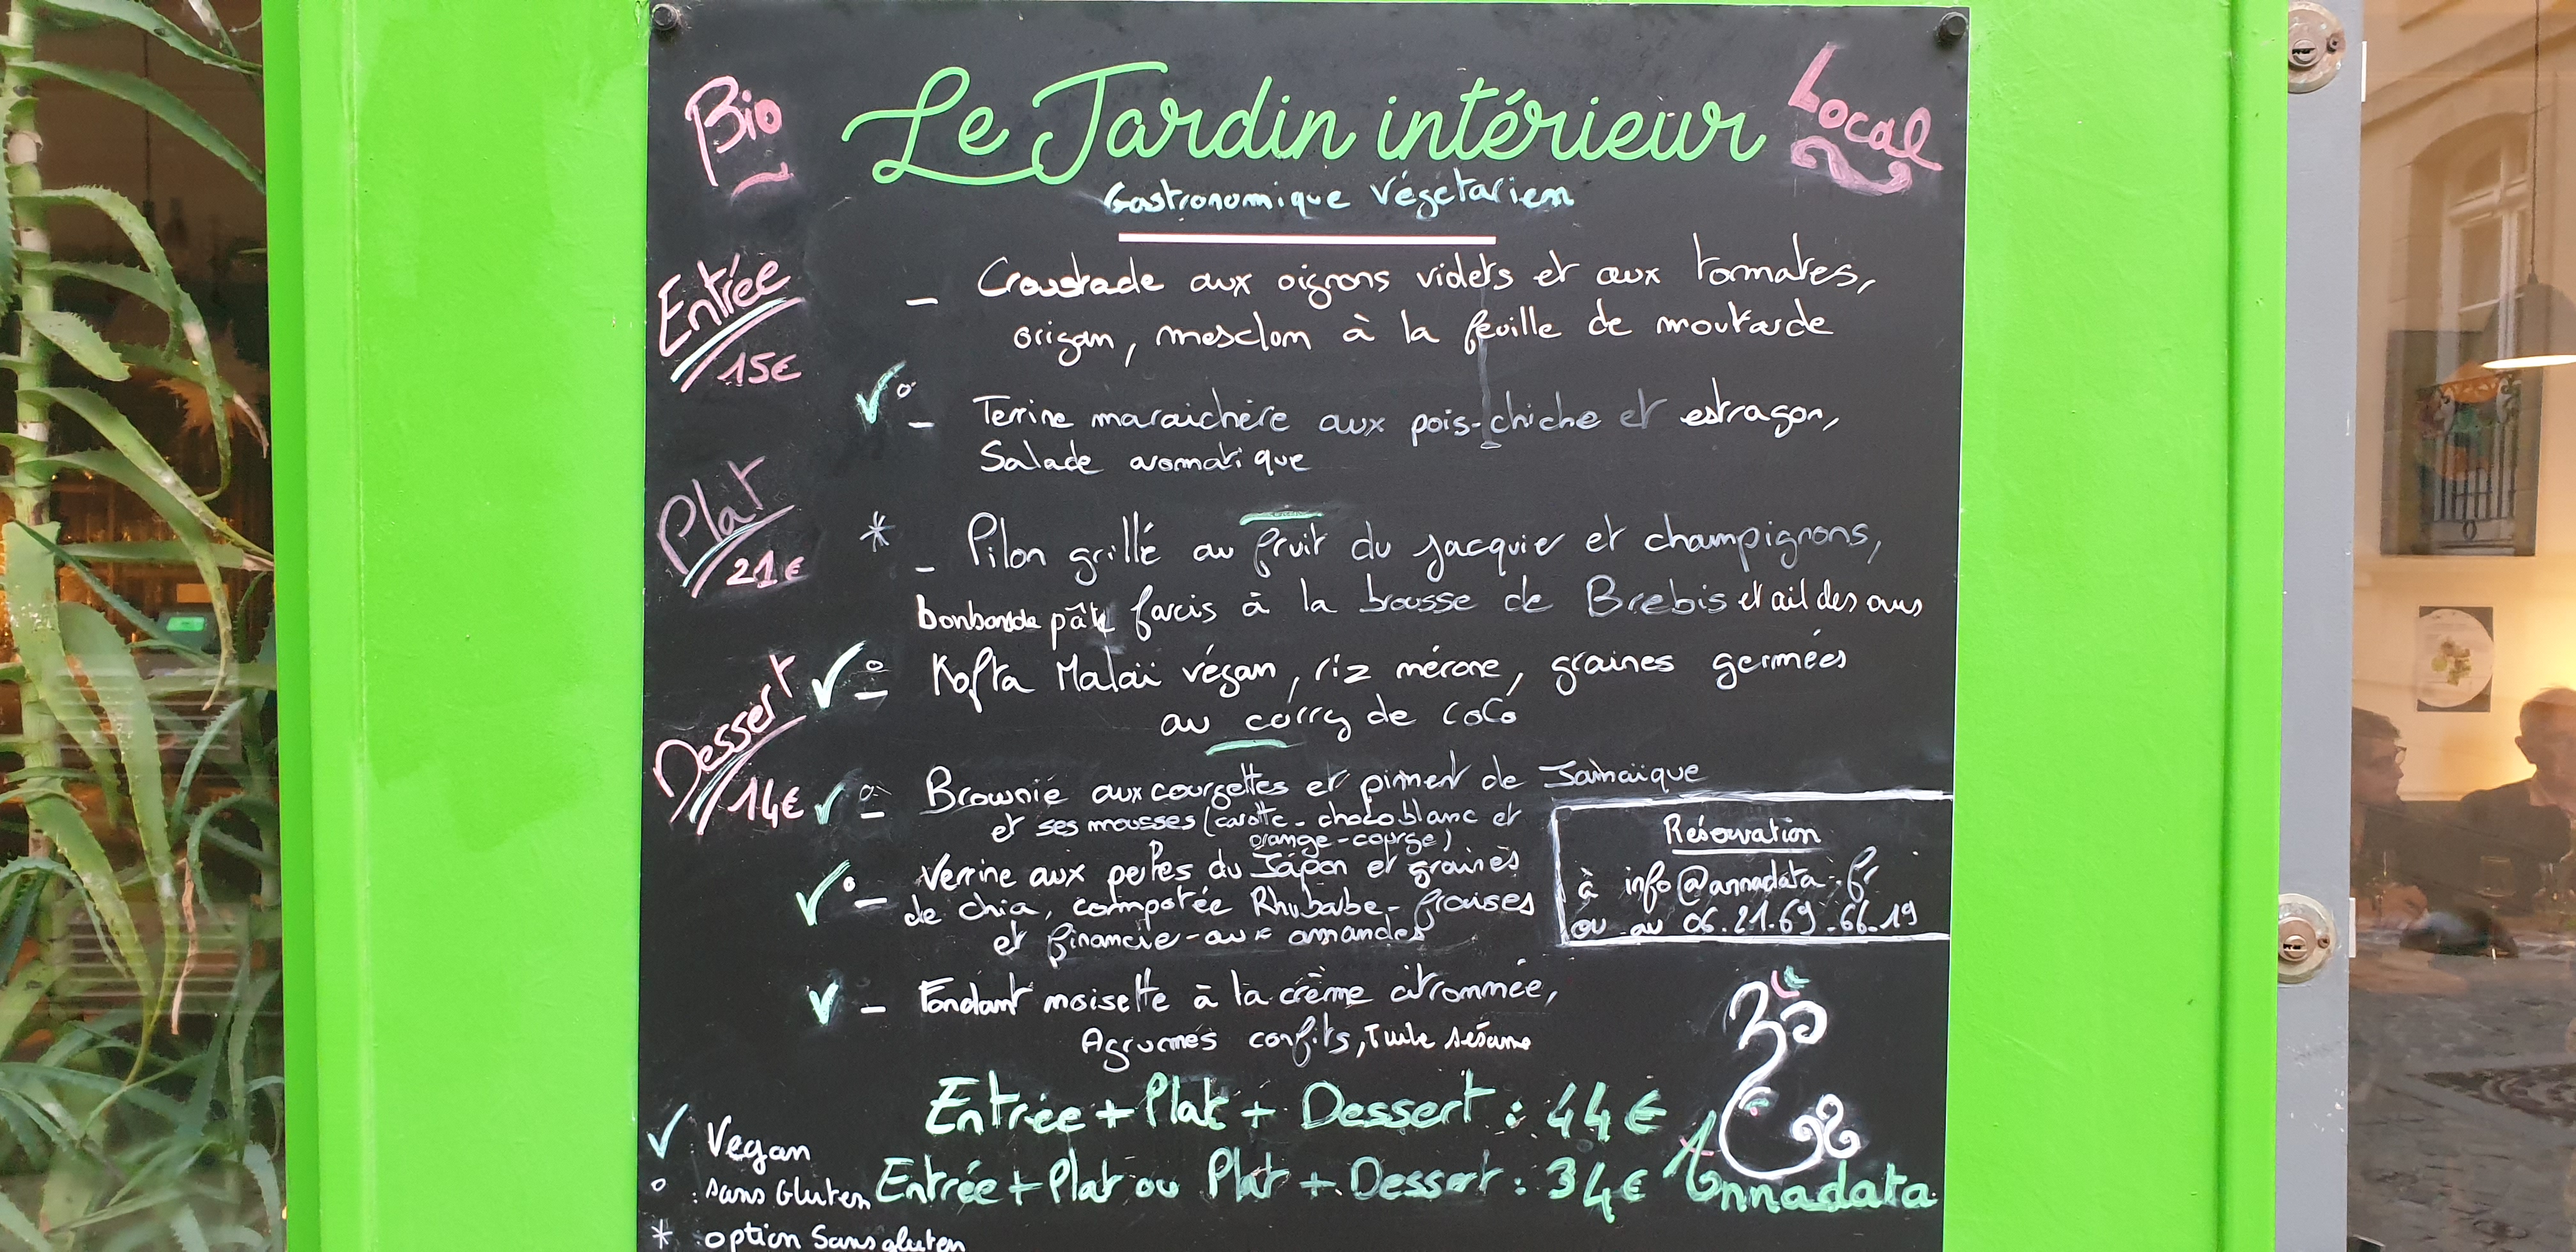 Bio
Le Jardin intérieur
Local
Gastronomique Végétarien
Entrée
15€
– Croustade aux oignons violets et aux tomates,
origan, mesclun à la feuille de moutarde
✓° – Terrine maraichère aux pois-chiche et estragon,
Salade aromatique
Plat
21€
* – Pilon grillé au fruit du jacquier et champignons,
bonbon de pâte farcis à la brousse de Brebis et ail des ours
✓° – Kofta Malaï végan, riz mérone, graines germées
au curry de coco
Dessert
14€
✓° – Brownie aux courgettes et piment de Jamaïque
et ses mousses (carotte - choco blanc et
orange-courge)
✓° – Verrine aux perles du Japon et graines
de chia, compotée Rhubabe- fraises
et financie-aux amandes
✓ – Fondant noisette à la crème citronnée,
Agrumes confits, Tuile sésame
Réservation
à info@annadata.fr
ou au 06.21.69.66.19
Entrée + Plat + Dessert : 44€
Entrée + Plat ou Plat + Dessert : 34€
Annadata
✓ : Vegan
° : sans Gluten
* : option Sans gluten